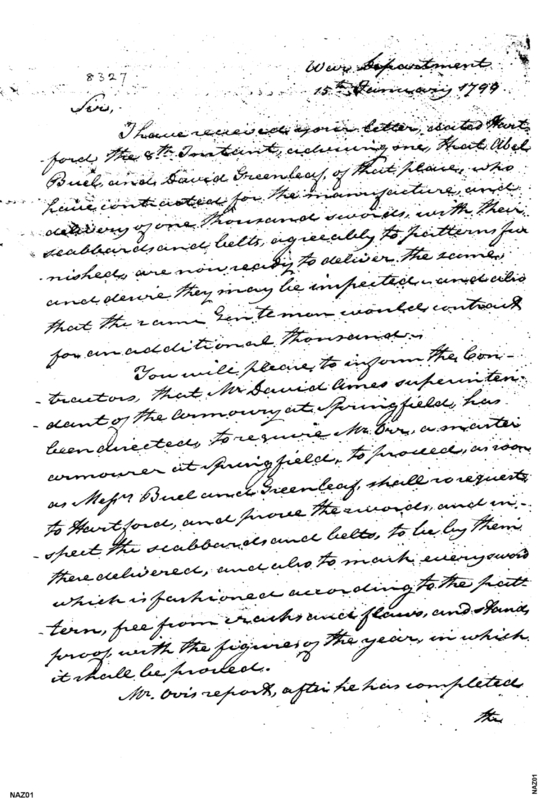 8327
War Department
15th January 1799
Sir,
I have received your letter, dated Hart-
ford the 8th Instant, advising me, that Abel
Buel, and David Greenleaf, of that place, who
have contracted for the manufacture, and
delivery of one thousand swords, with their
scabbards and belts, agreeably to patterns fur
nished, are now ready to deliver the same,
and desire they may be inspected - and also
that the same Gentleman would contract
for an additional thousand.
You will please, to inform the Con-
tractors, that Mr David Ames superinten-
dant of the Armoury at Springfield, has
been directed, to require Mr. Orr, a master
armourer at Springfield, to proceed, as soon
as Messrs Buel and Greenleaf, shall so request
to Hartford, and prove the swords, and in-
-spect the scabbards and belts, to be by them
there delivered, and also to mark every sword
which is fashioned according to the patt
-tern, free from cracks and flaws, and stands
proof, with the figures of the year, in which
it shall be proved.
Mr. Orr's report, after he has completed
the
NAZ01
NAZ01